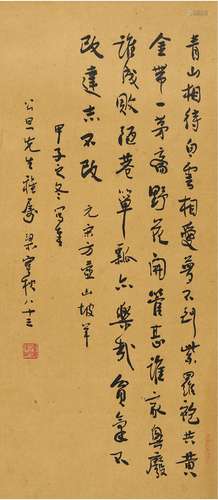 青山相待白雲相愛夢不到紫羅袍共黃
金帶一茅齋野花開管甚誰家興廢
誰成敗陋巷簞瓢亦樂哉貧氣不
改達志不改 元宋方壺山坡羊
甲子之冬寫奉
公旦先生雅屬 梁實秋 八十三